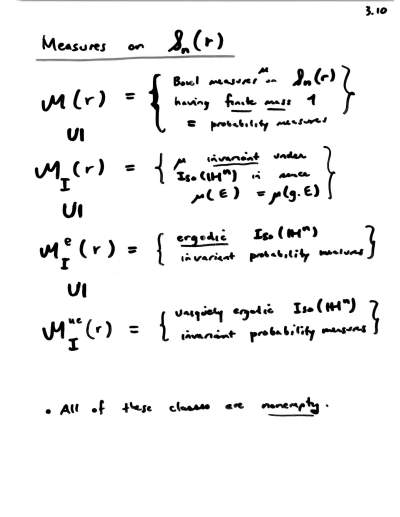 3.10
Measures on 𝒮ₙ(r)
ℳ(r) = { Borel measures μ on 𝒮ₙ(r)
having finite mass 1
= probability measures }
∪|
ℳ_I(r) = { μ invariant under
Iso(ℍⁿ) in sense
μ(E) = μ(g.E) }
∪|
ℳ_I^e(r) = { ergodic Iso(ℍⁿ)
invariant probability measures }
∪|
ℳ_I^ue(r) = { uniquely ergodic Iso(ℍⁿ)
invariant probability measures }
• All of these classes are nonempty.